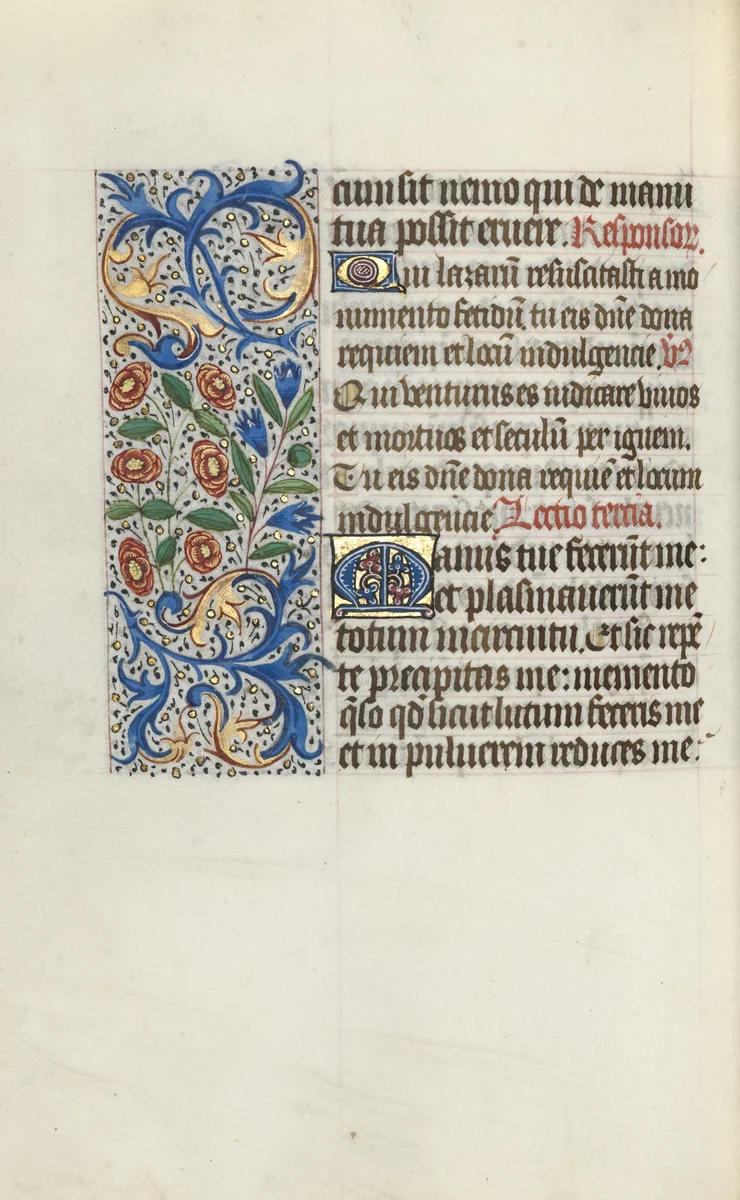 cum sit nemo qui de manu
tua possit eruere. Responsor.
Qui lazarū resuscitasti a mo
numento fetidū. tu eis dñe dona
requiem et locū indulgencie. V̄
Qui venturus es iudicare viuos
et mortuos et seculū per ignem.
Tu eis dñe dona requiē et locum
indulgencie. Lectio tercia.
Manus tue fecerūt me:
et plasmauerūt me
totum in circuitu. Et sic repē
te precipitas me: memento
q̄so qđ sicut lutum feceris me
et in puluerem reduces me: